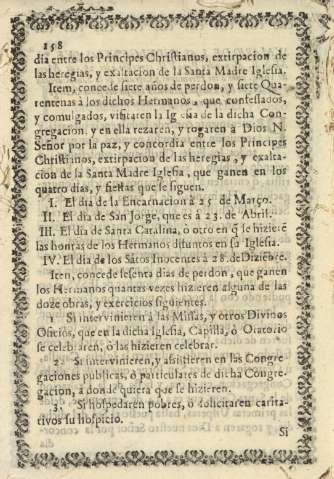 158
dia entre los Principes Christianos, extirpacion de
las heregias, y exaltacion de la Santa Madre Iglesia.
Item, concede siete años de perdon, y siete Qua-
rentenas à los dichos Hermanos, que confessados,
y comulgados, visitaren la Iglesia de la dicha Con-
gregacion, y en ella rezaren, y rogaren à Dios N.
Señor por la paz, y concordia entre los Principes
Christianos, extirpacion de las heregias, y exalta-
cion de la Santa Madre Iglesia, que ganen en los
quatro dias, y fiestas que se siguen.
I. El dia de la Encarnacion à 25. de Março.
II. El dia de San Jorge, que es à 23. de Abril.
III. El dia de Santa Catalina, ò otro en q̃ se hizierẽ
las honras de los Hermanos difuntos en su Iglesia.
IV. El dia de los Sãtos Inocentes à 28. de Diziẽbre.
Iten, concede sesenta dias de perdon, que ganen
los Hermanos quantas vezes hizieren alguna de las
doze obras, y exercicios siguientes.
1 Si intervinieren à las Missas, y otros Divinos
Oficios, que en la dicha Iglesia, Capilla, ò Oratorio
se celebraren, ò las hizieren celebrar.
2. Si intervinieren, y assistieren en las Congre-
gaciones publicas, ò particulares de dicha Congre-
gacion, à donde quiera que se hizieren.
3. Si hospedaren pobres, ò solicitaren carita-
tivos su hospicio.
Si